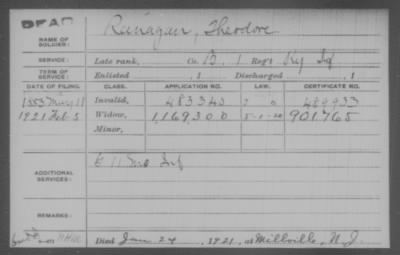 DEAD
NAME OF SOLDIER: Theodore
SERVICE: Late rank, Co. B, 1 Reg't Ky Inf
TERM OF SERVICE: Enlisted , 1 Discharged , 1
DATE OF FILING. CLASS. APPLICATION NO. LAW. CERTIFICATE NO.
1883 May 11 Invalid, 483343
1921 Feb 5 Widow, 1,169,300 901,765
Minor,
ADDITIONAL SERVICES: E 11 Mo Inf
REMARKS:
Died Jan 24, 1921, at Millville, N. J.